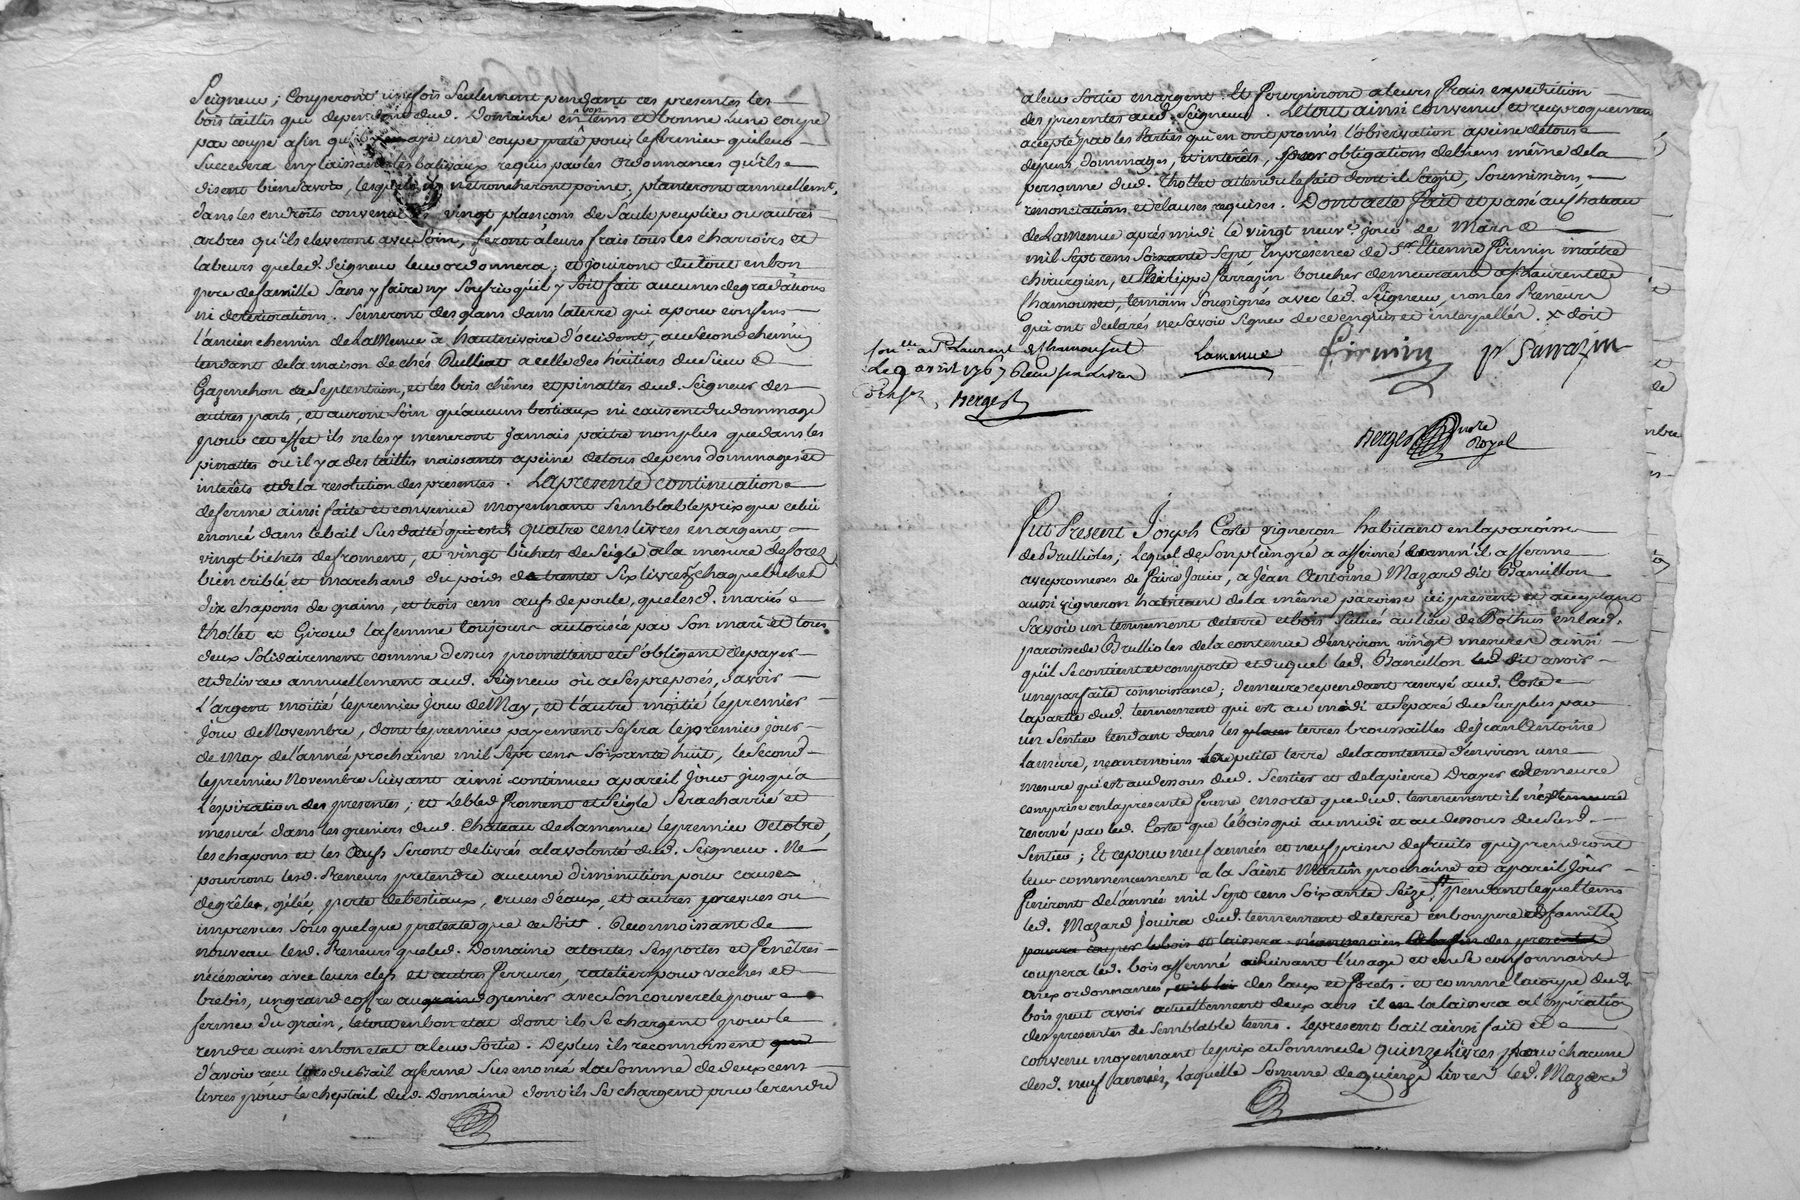 Seigneur ; Couperont une fois Seulement pendant ces presentes les
bois taillis qui dependent dud. Domaine en tems et bonne Lune coupe
par coupe afin qu'il aye une coupe prete pour le fermier qui leur
Succedera en y laissant les baliveaux requis par les Ordonnances qu'ils
disent bien savoir, lesquels ils n'etroncheront point, planteront annuellemt.
dans les endroits convenables vingt plancons de Saule peuplier ou autres
arbres qu'ils eleveront avec Soin, feront a leurs frais tous les charrois et
labeurs que led. Seigneur leur ordonnera ; et jouiront du tout en bon
pere de famille Sans y faire ny Soufrir qu'il y Soit fait aucunes degradations
ni deteriorations. Semeront des glans dans la terre qui a pour confins
l'ancien chemin de Lamenue à hauterivoire d'occident, au Second chemin
tendant de la maison de chés Rulliat a celle des héritiers du Sieur
Gazenchon de Septentrion, et les bois chênes et pinattes dud. Seigneur des
autres parts, et auront Soin qu'aucuns bestiaux ni causent du dommage
pour cet effet ils ne les y meneront Jamais paître non plus que dans les
pinattes ou il y a des taillis naissants a peine de tous depens dommages et
interêts et de la resolution des presentes. La presente continuation
de ferme ainsi faite et convenue moyennant Semblable prix que celui
enoncé dans le bail Sus datté qui est de quatre cens livres en argent
vingt bichets de froment, et vingt bichets de Seigle a la mesure de forez
bien criblé et marchand du poids de trente Six livres chaque bichet
dix chapons de grains, et trois cens œufs de poule, que lesd. mariés
thollet et Giroud la femme toujours autorisée par Son mari et tous
deux Solidairement comme dessus promettent et S'obligent de payer
et delivrer annuellement aud. Seigneur ou a Ses preposés, Savoir
L'argent moitié le premier Jour de May, et l'autre moitié le premier
Jour de Novembre, dont le premier payement Se fera le premier jour
de May de l'année prochaine mil Sept cens Soixante huit, le Second
le premier Novembre Suivant ainsi continuer a pareil Jour jusqu'a
L'expiration des presentes ; et Le bled froment et Seigle Sera charrié et
mesuré dans les greniers dud. Chateau de Lamenue le premier Octobre,
les chapons et les Œufs Seront delivrés a la volonté dud. Seigneur. Ne
pourront lesd. Preneurs pretendre aucune diminution pour cause
de grêle, gélée, perte de bestiaux, crues d'eaux, et autres prevues ou
imprevues Sous quelque pretexte que ce Soit. Reconnoissant de
nouveau lesd. Preneurs que led. Domaine a toutes Ses portes et fenêtres
nécessaires avec leurs clefs et autres ferrures, rateliers pour vaches et
brebis, un grand coffre au grenier avec Son couvercle pour
fermer du grain, le tout en bon etat dont ils Se chargent pour le
rendre aussi en bon etat a leur Sortie. De plus ils reconnoissent
d'avoir reçu lors du Bail a ferme Sus enoncé La Somme de deux cens
livres pour le cheptail dud. Domaine dont ils Se chargent pour le rendre
a leur Sortie en argent. Et fourniront a leurs frais expedition
des presentes aud. Seigneur. Le tout ainsi convenu et reciproquement
accepté par les Parties qui en ont promis l'observation a peine de tous
depens, dommages, et interêts, sous obligations de biens même de la
personne dud. thollet attendu le fait dont il S'agit, Soumissions,
renonciations et clauses requises. Dont acte fait et passé au Chateau
de Lamenue après midi le vingt neuve. jour de Mars
mil Sept cens Soixante Sept en presence de Sr. Etienne firmin maitre
chirurgien, et Philippe Sarrazin boucher demeurans a St. Laurent de
Chamousset, temoins Soussignés avec led. Seigneur, non les Preneurs
qui ont declarés ne Savoir Signer de ce enquis et interpellés. X doit
Conlle. a St. Laurent de Chamousset
Le 9 avril 1767 Reçu
Berger
Lamenue
firmin
pp Sarrazin
Berger Nore. Royal
Fut Present Joseph Coste vigneron habitant en la paroisse
de Brullioles ; Lequel de Son plein gré a affermé comm'il afferme
avec promesses de faire Jouir, a Jean Antoine Mazard dit Baneillon
aussi vigneron habitant de la même paroisse ici present et acceptant
Savoir un tennement de terre et bois Situés au lieu de Bothus en lad.
paroisse de Brullioles de la contenue d'environ vingt mesures ainsi
qu'il Se contient et comporte et duquel led. Baneillon dit avoir
une parfaite connoissance ; demeure cependant reservé aud. Coste
la partie dud. tennement qui est au midi et Separé du Surplus par
un Sentier tendant dans les terres broussailles de Jean Antoine
Lamure, neantmoins La petite terre de la contenue d'environ une
mesure qui est au dessous dud. Sentier et de la pierre Drayer demeure
comprise en la presente ferme en sorte que dud. tennement il n'est
reservé par led. Coste que le bois qui au midi et au dessous du Sud.
Sentier ; Et ce pour neuf années et neuf prises de fruits qui prendront
leur commencement a la Saint Martin prochaine et a pareil Jour
finiront de l'année mil Sept cens Soixante Seize pendant lequel tems
led. Mazard Jouira dud. tennement de terre en bon pere de famille
pourra couper le bois et laissera neantmoins a la fin des presentes
coupera led. bois affermé Suivant l'usage et en Se conformant
aux ordonnances des Eaux et forêts. et comme la coupe dud.
bois peut avoir actuellement deux ans il la laissera a l'expiration
des presentes de Semblable tems. Le present bail ainsi fait et
convenu moyennant le prix et Somme de quinze livres pour chacune
desd. neuf années, laquelle Somme de quinze livres led. Mazard